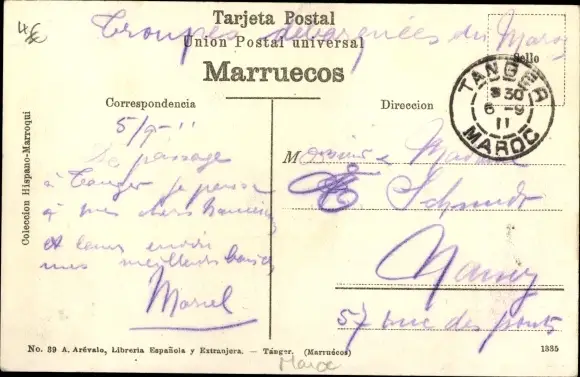 4€
Troupes débarquées du Maroc
Tarjeta Postal
Union Postal universal
Marruecos
Sello
TANGER
8 30
6 - 9
11
MAROC
Correspondencia
Direccion
5/9-11
De passage
à Tanger je pense
à mes chers
et leurs envoi
mes meilleurs
Marcel
Monsieur Madame
E Schmidt
Nancy
57 rue des ponts
Coleccion Hispano-Marroqui
No. 39 A. Arévalo, Libreria Española y Extranjera. — Tánger. (Marruécos)
1335
Maroc